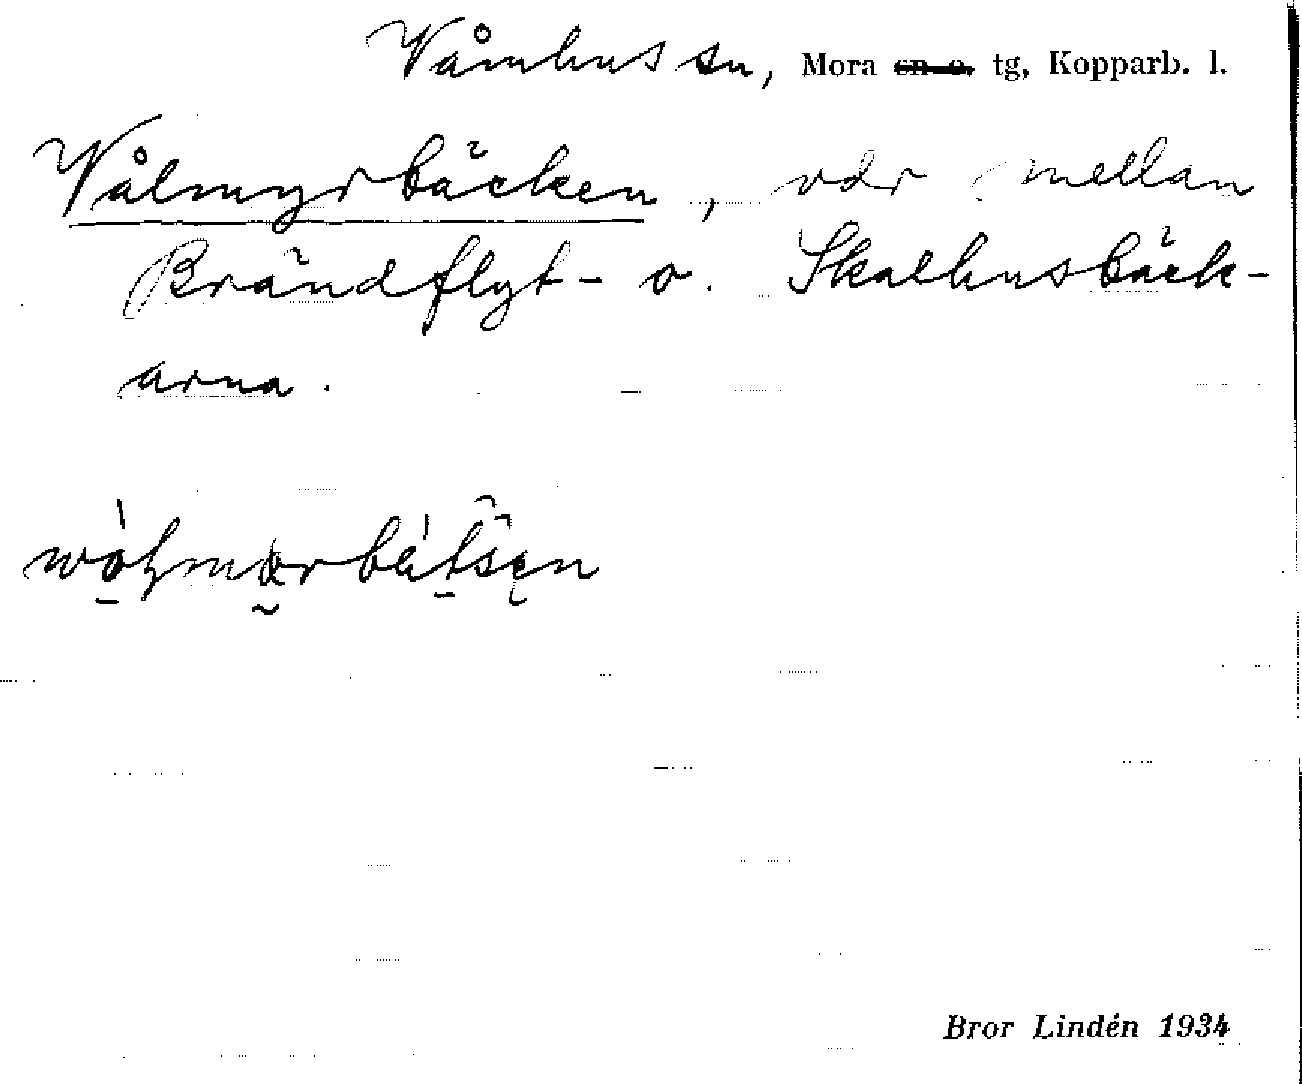 Våmhus sn, Mora sn o. tg, Kopparb. l.
Vålmyrbäcken, vdr mellan
Brändflyt- o. Skalhusbäck-
arna.
Bror Lindén 1934